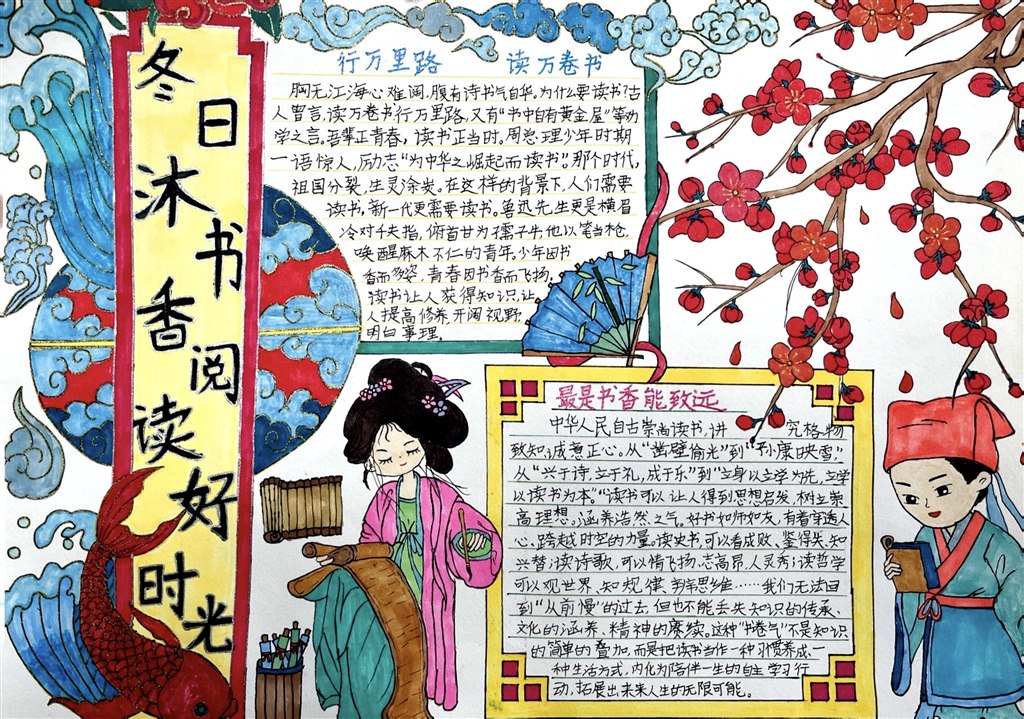 冬日沐书香阅读好时光
行万里路 读万卷书
胸无江海心难阔,腹有诗书气自华,为什么要读书?古
人曾言,读万卷书行万里路,又有“书中自有黄金屋”等劝
学之言,吾辈正青春,读书正当时。周总理少年时期
一语惊人,励志“为中华之崛起而读书”。那个时代,
祖国分裂,生灵涂炭。在这样的背景下,人们需要
读书,新一代更需要读书。鲁迅先生更是横眉
冷对千夫指,俯首甘为孺子牛,他以笔当枪,
唤醒麻木不仁的青年。少年因书
香而多姿,青春因书香而飞扬,
读书让人获得知识,让
人提高修养,开阔视野,
明白事理。
最是书香能致远
中华人民自古崇尚读书,讲 究格物
致知,诚意正心。从“凿壁偷光”到“孙康映雪”,
从“兴于诗,立于礼,成于乐”到“立身以立学为先,立学
以读书为本。”“读书可以让人得到思想启发,树立崇
高理想,涵养浩然之气。好书如师如友,有着穿透人
心、跨越时空的力量。读史书,可以看成败、鉴得失、知
兴替;读诗歌,可以情飞扬、志高昂、人灵秀;读哲学
可以观世界、知规律、辨思维……我们无法回
到“从前慢”的过去,但也不能丢失知识的传承、
文化的涵养、精神的赓续。这种“书卷气”不是知识
的简单的叠加,而是把读书当作一种习惯养成、一
种生活方式,内化为陪伴一生的自主学习行
动,拓展出未来人生的无限可能。